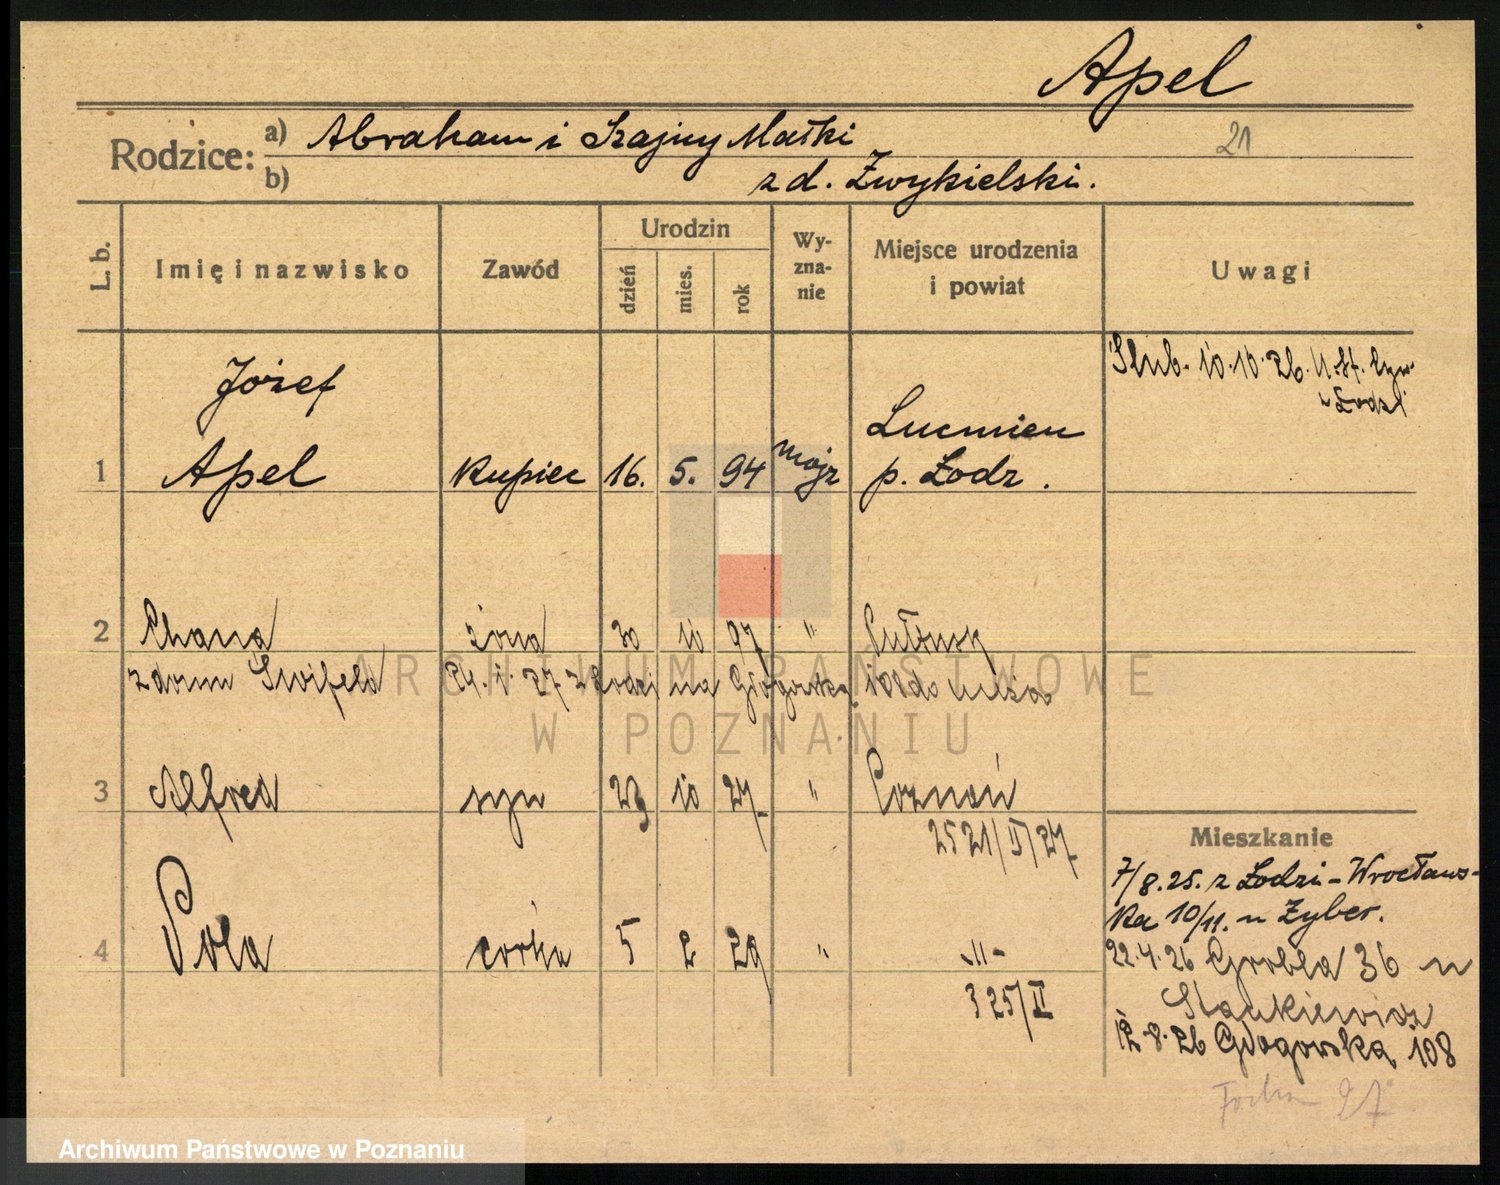 Apel
Rodzice: a) Abraham i Szajny Małki
21
b) z d. Żwykielski.
L. b.
Imię i nazwisko
Zawód
Urodzin
dzień
mies.
rok
Wy-
zna-
nie
Miejsce urodzenia
i powiat
Uwagi
Ślub. 10.10.26. U. St. Cyw.
w Łodzi
Józef
Lucmien
1 Apel kupiec 16. 5. 94 mojż p. Łodz.
2 Chana żona 30 10 97 " Pułtusk
z domu 24. 1. 27 z Łodzi na Głogowską 108 do męża
ARCHIWUM PAŃSTWOWE
W POZNANIU
3 Alfred syn 23 10 27 " Poznań
2521/II/27
Mieszkanie
7/8.25. z Łodzi - Wrocławs-
ka 10/11. u Zyber.
4 Pola córka 5 2 29 " -"-
325/II
22.4.26 Grobla 36 u
Stankiewicz
12.8.26 Głogowska 108
Focha 27
Archiwum Państwowe w Poznaniu